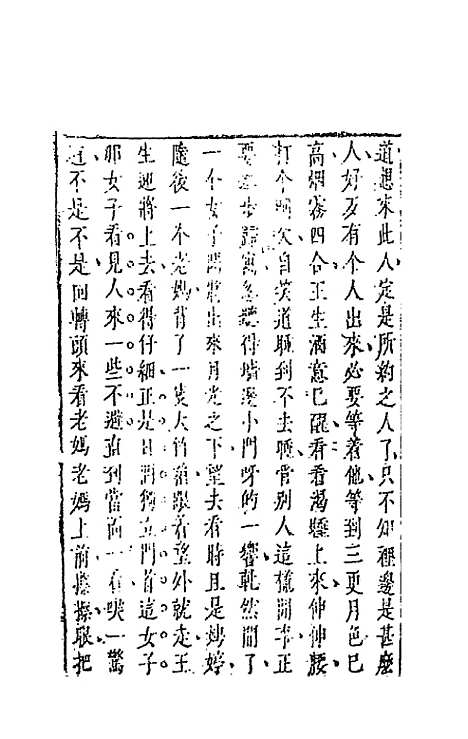 道想來此人定是所約之人了只不知裡邊是甚麽
人好歹有个人出來必要等着他等到三更月色已
高烟霧四合王生酒意已醒看看渴睡上來伸伸腰
打个呵欠自笑道睡到不去睡管別人這樣閒事正
要舉步歸寓忽聽得墻邊小門呀的一響軋然開了
一个女子閃將出來月光之下望去看時且是娉婷
隨後一个老媽背了一隻大竹箱跟着望外就走王
生迎將上去看得仔細正是日間獨立門首這女子
那女子看見人來一些不避直到當面一看吃一驚
道不是不是回轉頭來看老媽老媽上前擦擦眼把